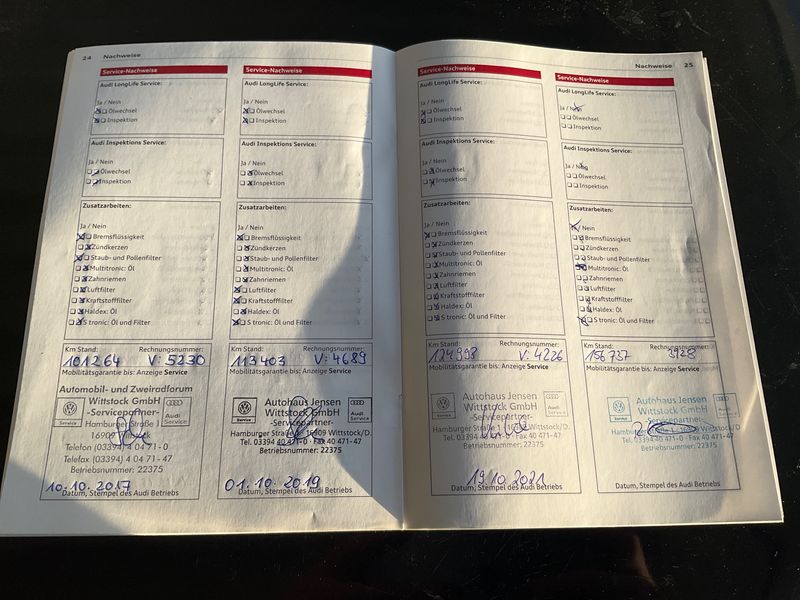 24 Nachweise
Service-Nachweise
Audi LongLife Service:
Ja / Nein
Ölwechsel
Inspektion
Audi Inspektions Service:
Ja / Nein
Ölwechsel
Inspektion
Zusatzarbeiten:
Ja / Nein
Bremsflüssigkeit
Zündkerzen
Staub- und Pollenfilter
Multitronic: Öl
Zahnriemen
Luftfilter
Kraftstofffilter
Haldex: Öl
S tronic: Öl und Filter
Km Stand: Rechnungsnummer:
101264 V: 5230
Mobilitätsgarantie bis: Anzeige Service
Automobil- und Zweiradforum
Wittstock GmbH
-Servicepartner-
Service
Audi
Service
Hamburger Straße 1
16909 Wittstock
Telefon (03394) 4 04 71-0
Telefax (03394) 4 04 71-47
Betriebsnummer: 22375
10.10.2017
Datum, Stempel des Audi Betriebs
Service-Nachweise
Audi LongLife Service:
Ja / Nein
Ölwechsel
Inspektion
Audi Inspektions Service:
Ja / Nein
Ölwechsel
Inspektion
Zusatzarbeiten:
Ja / Nein
Bremsflüssigkeit
Zündkerzen
Staub- und Pollenfilter
Multitronic: Öl
Zahnriemen
Luftfilter
Kraftstofffilter
Haldex: Öl
S tronic: Öl und Filter
Km Stand: Rechnungsnummer:
113403 V: 4689
Mobilitätsgarantie bis: Anzeige Service
Autohaus Jensen
Wittstock GmbH
-Servicepartner-
Service
Audi
Service
Hamburger Straße 1 · 16909 Wittstock/D.
Tel. 03394 40 471-0 · Fax 40 471-47
Betriebsnummer: 22375
01.10.2019
Datum, Stempel des Audi Betriebs
Service-Nachweise
Audi LongLife Service:
Ja / Nein
Ölwechsel
Inspektion
Audi Inspektions Service:
Ja / Nein
Ölwechsel
Inspektion
Zusatzarbeiten:
Ja / Nein
Bremsflüssigkeit
Zündkerzen
Staub- und Pollenfilter
Multitronic: Öl
Zahnriemen
Luftfilter
Kraftstofffilter
Haldex: Öl
S tronic: Öl und Filter
Km Stand: Rechnungsnummer:
124993 V: 4226
Mobilitätsgarantie bis: Anzeige Service
Autohaus Jensen
Wittstock GmbH
-Servicepartner-
Service
Audi
Service
Hamburger Straße 1 · 16909 Wittstock/D.
Tel. 03394 40 471-0 · Fax 40 471-47
Betriebsnummer: 22375
19.10.2021
Datum, Stempel des Audi Betriebs
Nachweise 25
Service-Nachweise
Audi LongLife Service:
Ja / Nein
Ölwechsel
Inspektion
Audi Inspektions Service:
Ja / Nein
Ölwechsel
Inspektion
Zusatzarbeiten:
Ja / Nein
Bremsflüssigkeit
Zündkerzen
Staub- und Pollenfilter
Multitronic: Öl
Zahnriemen
Luftfilter
Kraftstofffilter
Haldex: Öl
S tronic: Öl und Filter
Km Stand: Rechnungsnummer:
156737 3928
Mobilitätsgarantie bis: Anzeige Service
Autohaus Jensen
Wittstock GmbH
-Servicepartner-
Service
Audi
Service
Hamburger Wittstock/D.
Tel. 03394 40 471-0 · Fax 40 471-47
Betriebsnummer: 22375
Datum, Stempel des Audi Betriebs